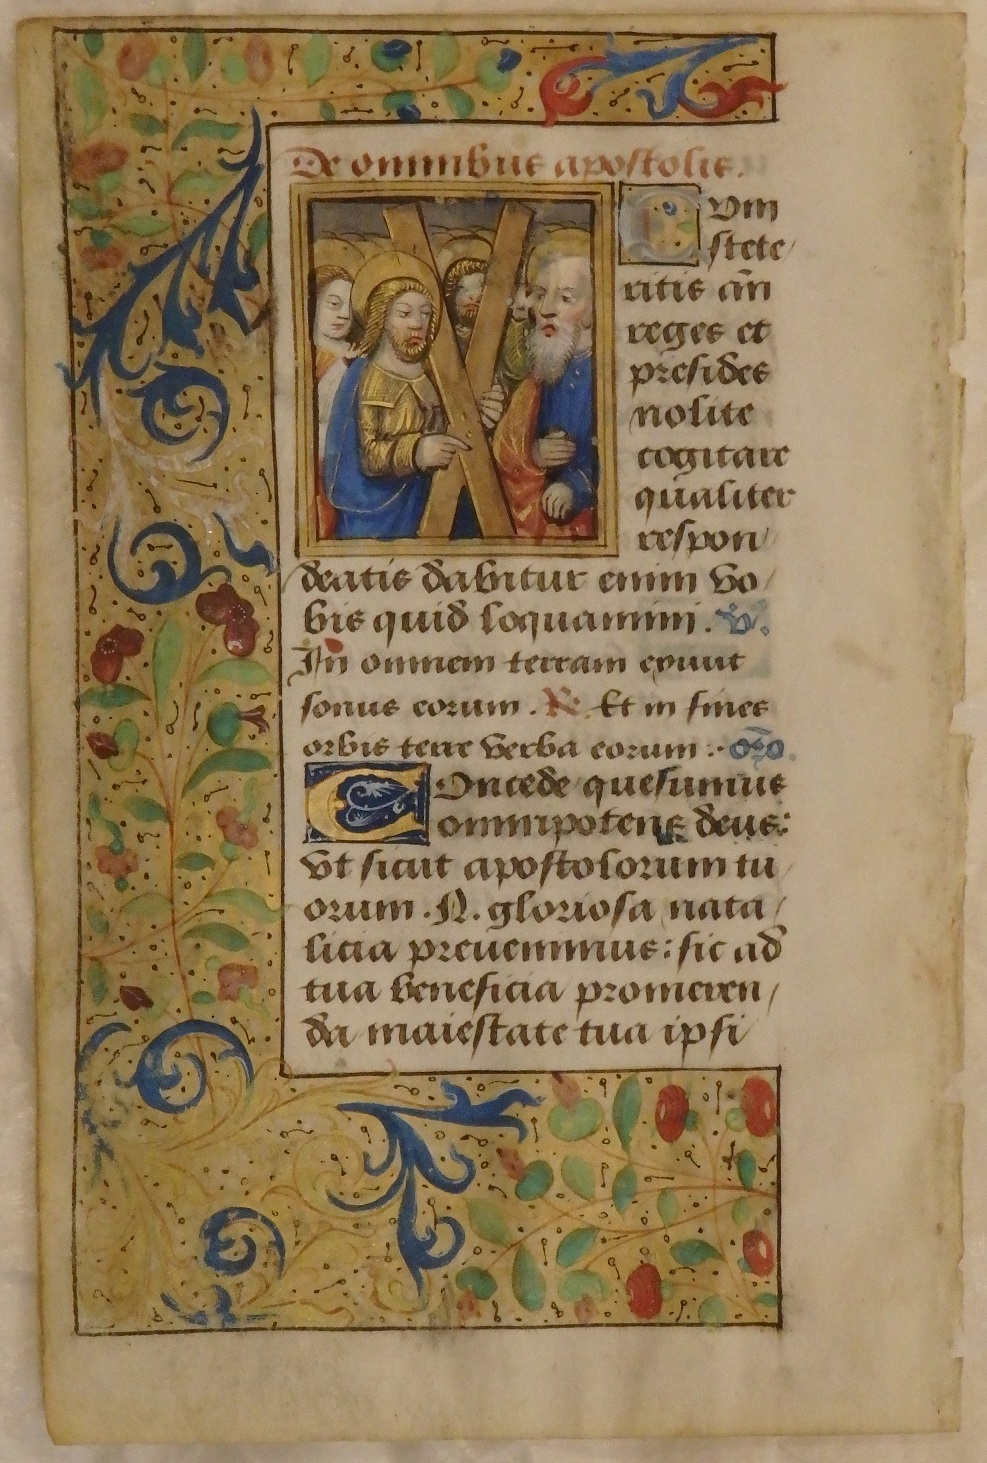 De omnibus apostolis.
Cum
stete/
ritis añ
reges et
presides
nolite
cogitare
qualiter
respon/
deatis dabitur enim vo/
bis quid loquamini. v̄.
In omnem terram exiuit
sonus eorum. R. Et in fines
orbis terre verba eorum:· or̄o.
Concede quesumus
omnipotens deus:
vt sicut apostolorum tu/
orum .N. gloriosa nata/
licia preuenimus: sic ad
tua beneficia promeren/
da maiestate tua ipsi